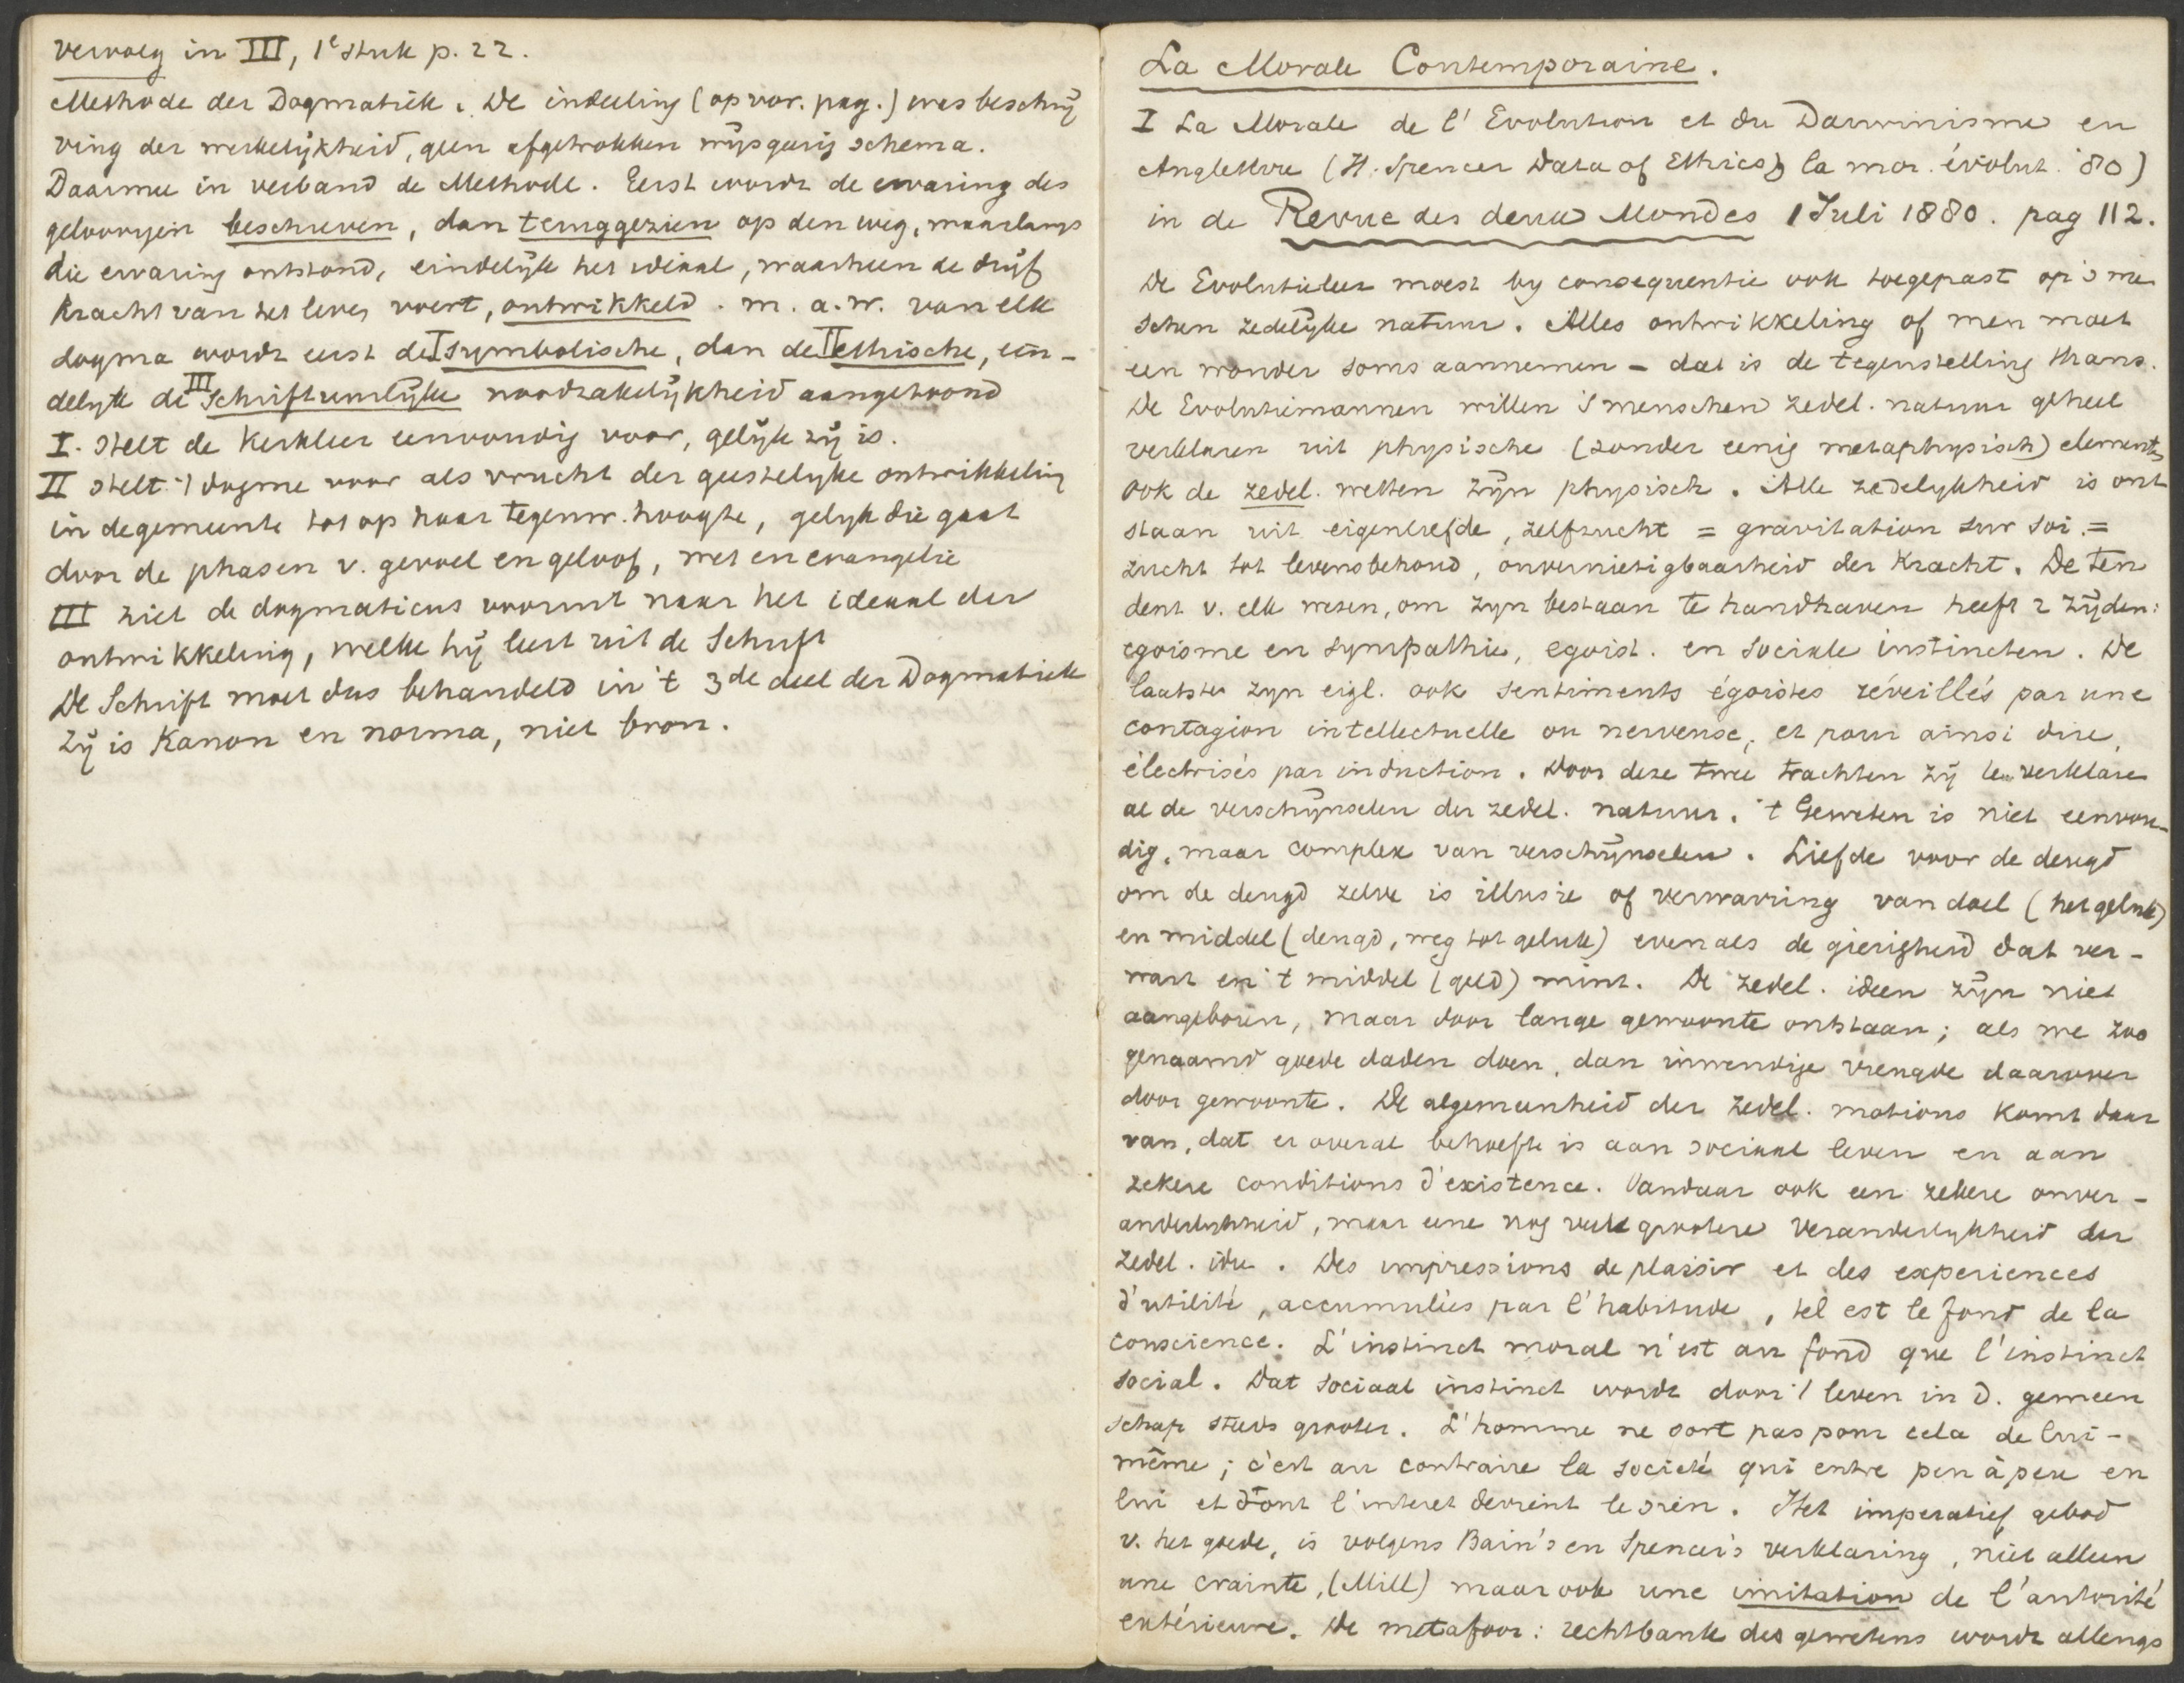 Vervolg in III, 1e stuk p. 22.
Methode der Dogmatiek. De indeeling (op vor. pag.) was beschrij
ving der werkelijkheid, geen afgetrokken wijsgeerig schema.
Daarmee in verband de Methode. Eerst wordt de ervaring des
geloovigen beschreven, dan teruggezien op den weg, waarlangs
die ervaring ontstond, eindelijk het ideaal, waarheen de drijf
kracht van het leven voert, ontwikkeld. m.a.w. van elk
dogma wordt eerst de I symbolische, dan de II ethische, ein-
delyk de III Schriftuurlijke noodzakelijkheid aangetoond
I. Stelt de Kerkleer eenvoudig voor, gelijk zij is.
II stelt 't dogme voor als vrucht der geestelyke ontwikkeling
in de gemeente tot op haar tegenw. hoogte, gelyk die gaat
door de phasen v. gevoel en geloof, wet en evangelie
III ziet de dogmaticus vooruit naar het ideaal der
ontwikkeling, welke hij leert uit de Schrift
De Schrift moet dus behandeld in 't 3de deel der Dogmatiek
Zij is Kanon en norma, niet bron.
La Morale Contemporaine.
I La Morale de l'Evolution et du Darwinisme en
Angleterre (H. Spencer Data of Ethics, la mor. évolut. '80)
in de Revue des deux Mondes 1 Juli 1880. pag 112.
De Evolutieleer moest by consequentie ook toegepast op 's men
schen zedelijke natuur. Alles ontwikkeling of men moet
een wonder soms aannemen – dat is de tegenstelling thans.
De Evolutiemannen willen 's menschen zedel. natuur geheel
verklaren uit physische (zonder eenig metaphysisch) elementen
ook de zedel. wetten zijn physisch. Alle zedelykheid is ont
staan uit eigenliefde, zelfzucht = gravitation sur soi. =
zucht tot levensbehoud, onvernietigbaarheid der Kracht. De ten
dent v. elk wesen, om zyn bestaan te handhaven heeft 2 zijden:
egoisme en sympathie, egoist. en sociale instincten. De
laatste zyn eigl. ook sentiments égoistes réveillés par une
contagion intellectuelle ou nerveuse, et pour ainsi dire,
électrisés par induction. Door deze twee trachten zij te verklaren
al de verschijnselen der zedel. natuur. 't Geweten is niet eenvou-
dig, maar complex van verschijnselen. Liefde voor de deugd
om de deugd zelve is illusie of verwarring van doel (het geluk)
en middel (deugd, weg tot geluk) evenals de gierigheid dat ver-
wart en 't middel (geld) mint. De zedel. ideen zijn niet
aangeboren, maar door lange gewoonte ontstaan; als we zoo
genaamd goede daden doen, dan inwendige vreugde daarover
door gewoonte. De algemeenheid der zedel. motions komt daar
van, dat er overal behoefte is aan sociaal leven en aan
zekere conditions d'existence. Vandaar ook een zekere onver-
anderlykheid, maar eene nog veel grootere veranderlykheid der
zedel. idee. Des impressions de plaisir et des experiences
d'utilité, accumulées par l'habitude, tel est le fond de la
conscience. L'instinct moral n'est au fond que l'instinct
social. Dat sociaal instinct wordt door 't leven in d. gemeen
schap steeds grooter. L'homme ne sort pas pour cela de lui-
même; c'est au contraire la societé qui entre peu à peu en
lui et dont l'interet devient le sien. Het imperatief gebod
v. het goede, is volgens Bain's en Spencer's verklaring, niet alleen
une crainte, (Mill) maar ook une imitation de l'autorité
extérieure. De metafoor: rechtbank des gewetens wordt allengs